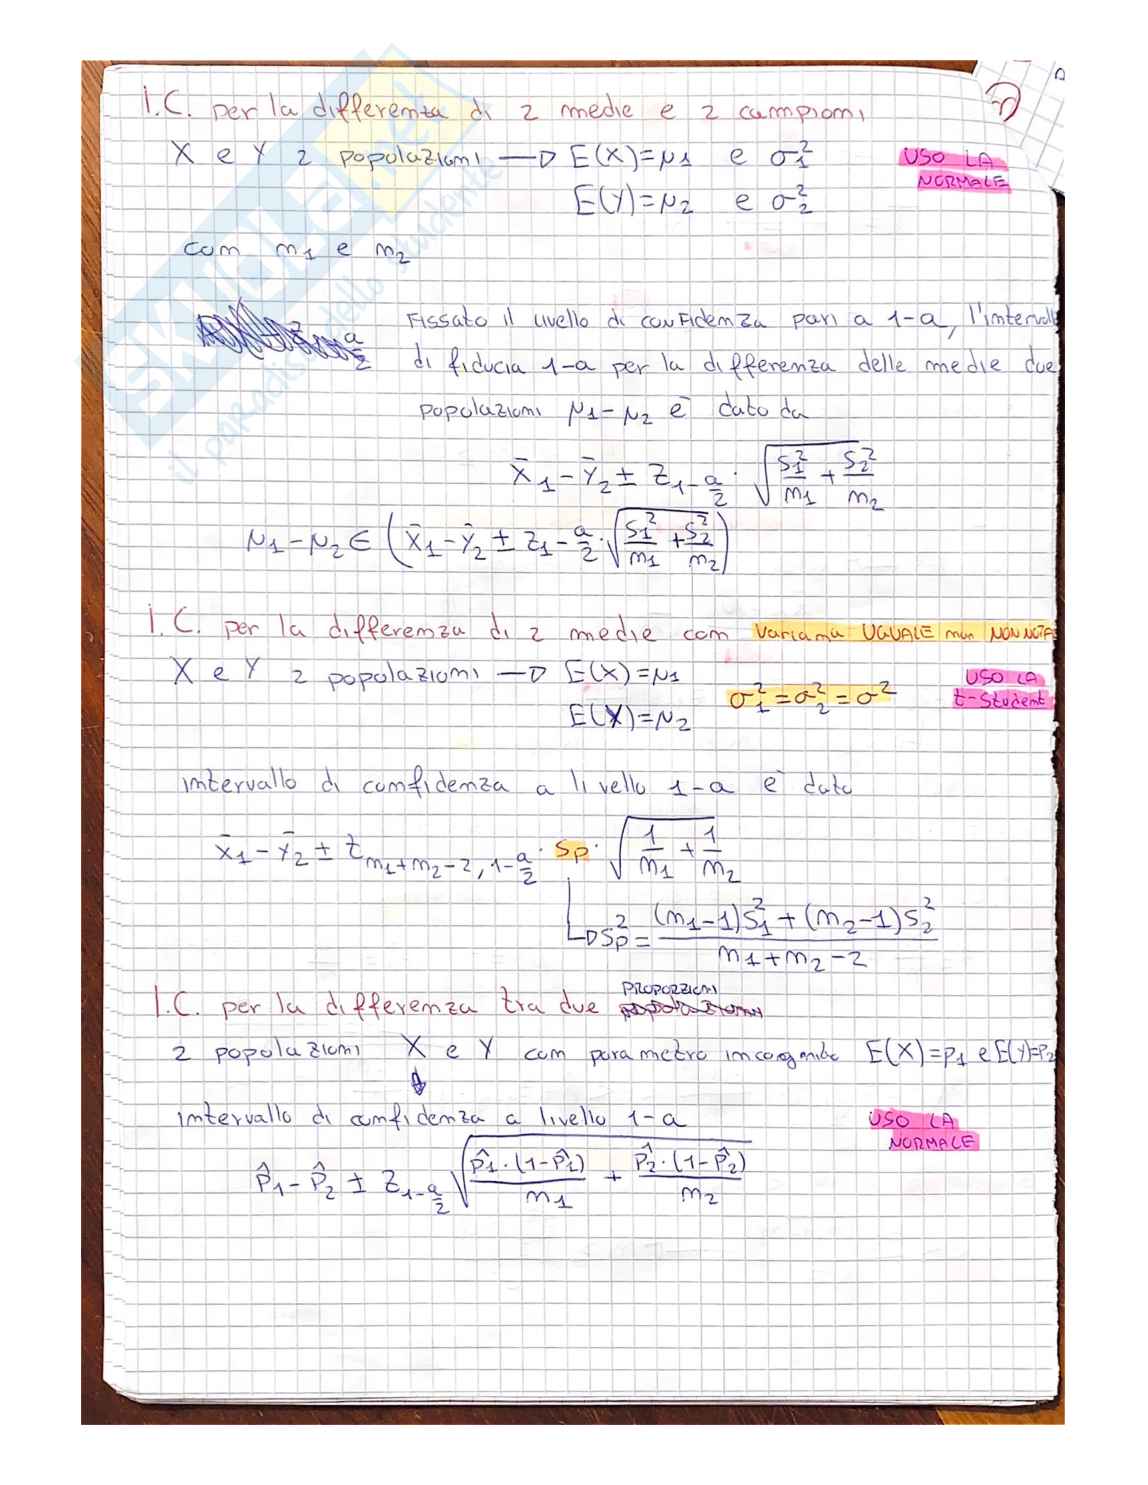 I.C. per la differenza di 2 medie e 2 campioni
X e Y 2 popolazioni → E(X)=μ1 e σ1²
USO LA NORMALE
E(Y)=μ2 e σ2²
con n1 e n2
a/2
Fissato il livello di confidenza pari a 1-a, l'intervallo
di fiducia 1-a per la differenza delle medie due
popolazioni μ1-μ2 è dato da
X̄1-Ȳ2 ± Z1-a/2 · √(S1²/n1 + S2²/n2)
μ1-μ2 ∈ (X̄1-Ȳ2 ± Z1-a/2 · √(S1²/n1 + S2²/n2))
I.C. per la differenza di 2 medie con varianza UGUALE ma NON NOTA
X e Y 2 popolazioni → E(X)=μ1
USO LA t-Student
σ1²=σ2²=σ²
E(Y)=μ2
intervallo di confidenza a livello 1-a è dato
X̄1-Ȳ2 ± t n1+n2-2, 1-a/2 · Sp · √(1/n1 + 1/n2)
→ Sp² = ((n1-1)S1² + (n2-1)S2²)/(n1+n2-2)
I.C. per la differenza tra due PROPORZIONI
2 popolazioni X e Y con parametro incognito E(X)=p1 e E(Y)=p2
↓
intervallo di confidenza a livello 1-a
USO LA NORMALE
p̂1-p̂2 ± Z1-a/2 √(p̂1·(1-p̂1)/n1 + p̂2·(1-p̂2)/n2)
SKUOLA.net
il paradiso dello studente